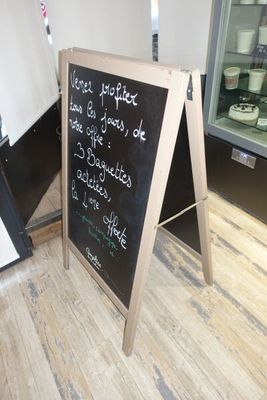 Venez profiter
tous les jours, de
votre offre :
3 Baguettes
achetées,
la 4 ème offerte